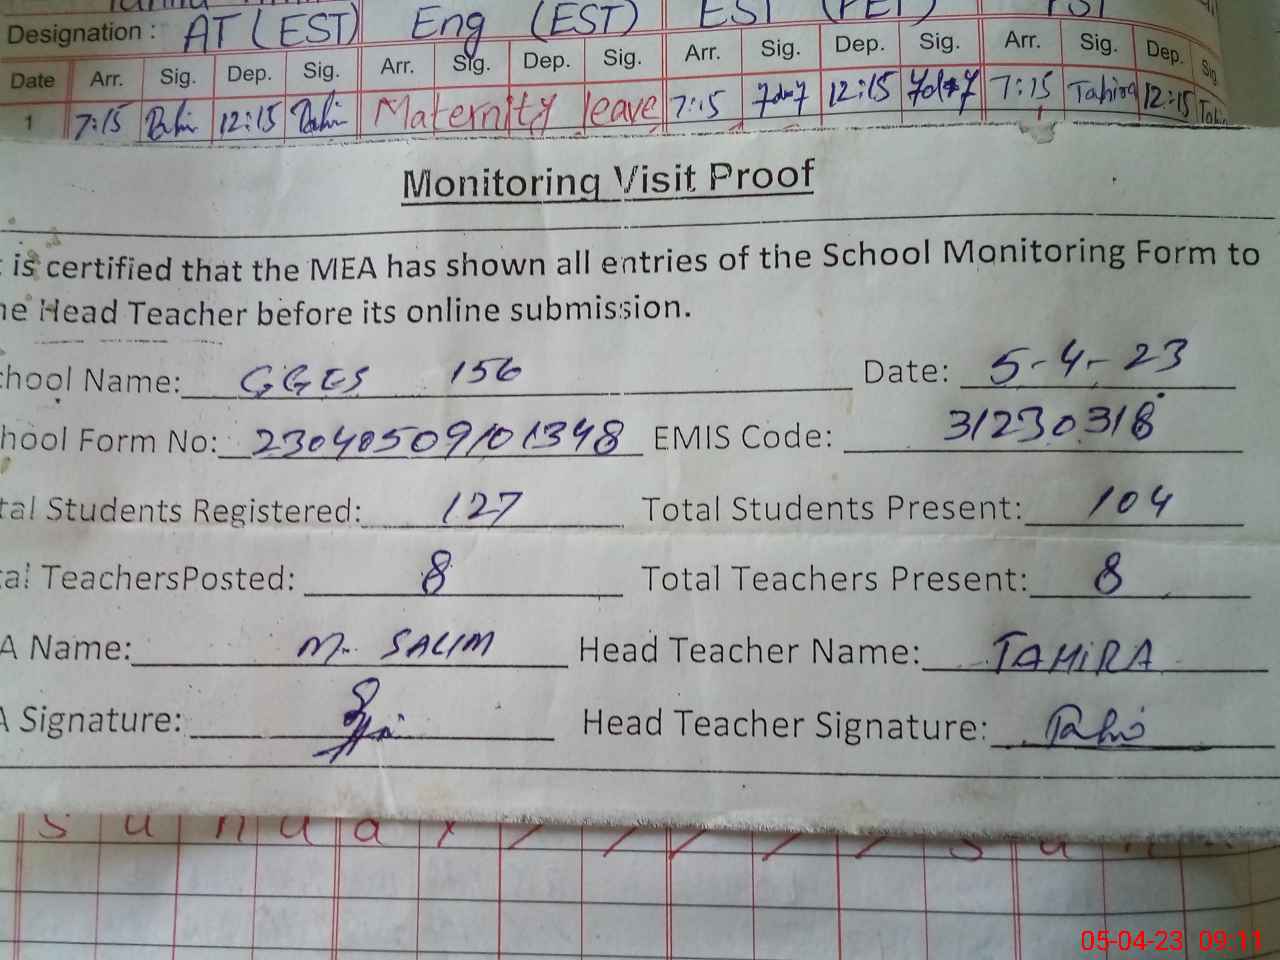 Designation : AT (EST) Eng (EST) EST
Date Arr. Sig. Dep. Sig. Arr. Sig. Dep. Sig. Arr. Sig. Dep. Sig. Arr. Sig. Dep. Sig.
1 7:15 12:15 Maternity leave 7:15 12:15 7:15 Tahira 12:15
Monitoring Visit Proof
is certified that the MEA has shown all entries of the School Monitoring Form to
he Head Teacher before its online submission.
chool Name: GGES 156 Date: 5-4-23
hool Form No: 23040509101348 EMIS Code: 31230318
tal Students Registered: 127 Total Students Present: 104
tal TeachersPosted: 8 Total Teachers Present: 8
A Name: M. SALIM Head Teacher Name: TAHIRA
A Signature: Head Teacher Signature:
S u n d a y / / / / / S u n
05-04-23 09:11